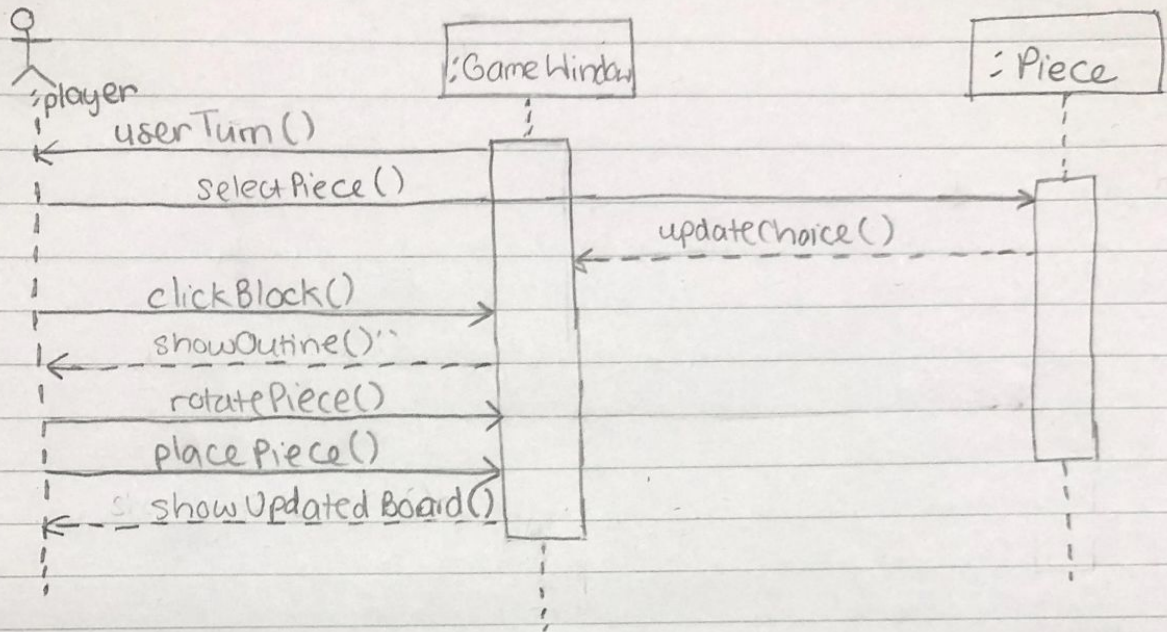 :GameWindow
: Piece
:player
userTurn()
selectPiece()
updateChoice()
clickBlock()
showOutine()
rotatePiece()
placePiece()
showUpdatedBoard()